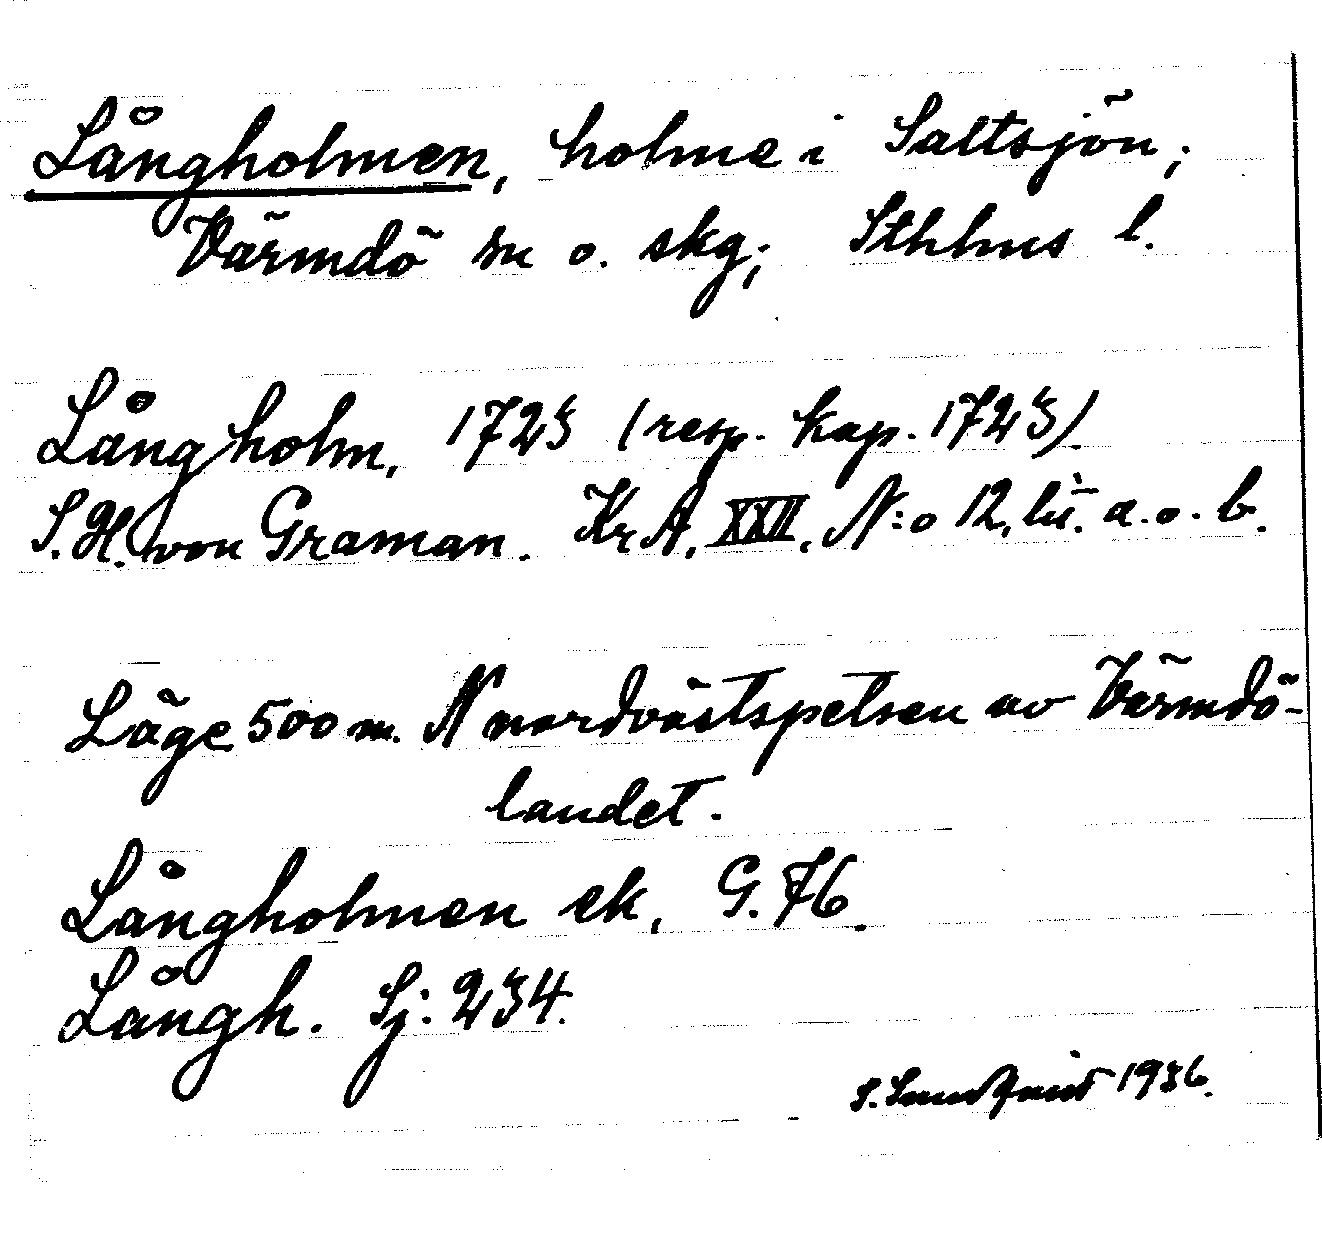 Långholmen, holme i Saltsjön;
Värmdö sn o. skg; Sthlms l.
Långholm, 1723 (resp. kap. 1723)
S. H. von Graman. KrA, XXII, N:o 12, lit. a. o. b.
Läge 500 m. N nordvästspetsen av Värmdö-
landet.
Långholmen ek, G. 76.
Långh. Sj: 234.
S. 1936.